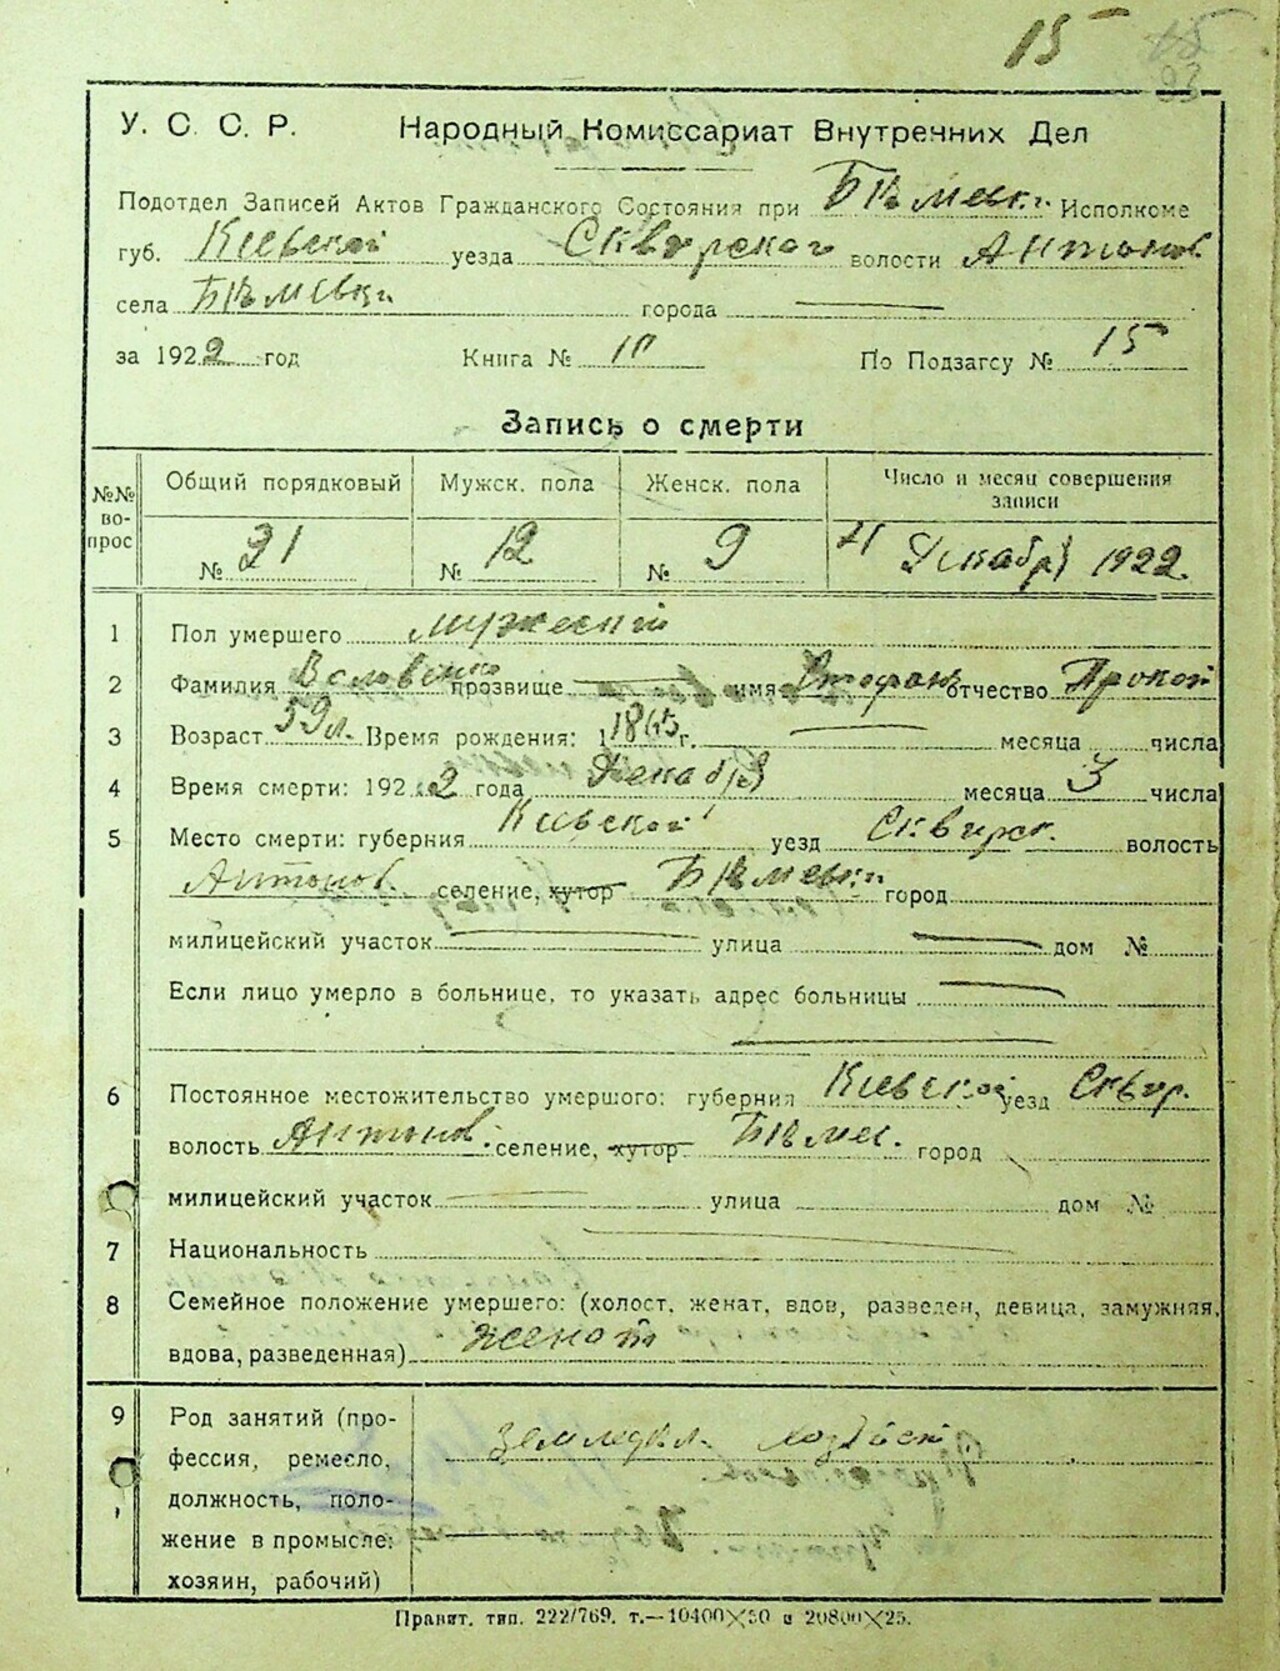 15
93
У. С. С. Р. Народный Комиссариат Внутренних Дел
Подотдел Записей Актов Гражданского Состояния при Исполкоме
губ. Киевской уезда Сквирского волости Антонов
села города
за 1922 год Книга № По Подзагсу № 15
Запись о смерти
№№ во-прос Общий порядковый Мужск. пола Женск. пола Число и месяц совершения записи
№ 21 № 12 № 9 Декабря 1922.
1 Пол умершего мужеский
2 Фамилия прозвище имя Стефан отчество Прокоп
3 Возраст 59 л. Время рождения: 1 г. месяца числа
4 Время смерти: 1922 года Декабря месяца 3 числа
5 Место смерти: губерния Киевской уезд Сквирск. волость
Антонов. селение, хутор город
милицейский участок улица дом №
Если лицо умерло в больнице, то указать адрес больницы
6 Постоянное местожительство умершого: губерния Киевской уезд Сквир.
волость Антонов. селение, хутор город
милицейский участок улица дом №
7 Национальность
8 Семейное положение умершего: (холост, женат, вдов, разведен, девица, замужняя,
вдова, разведенная) женат
9 Род занятий (про-
фессия, ремесло, земледел.
должность, поло-
жение в промысле:
хозяин, рабочий)
Правит. тип. 222/769. т.—10400×50 и 20800×25.